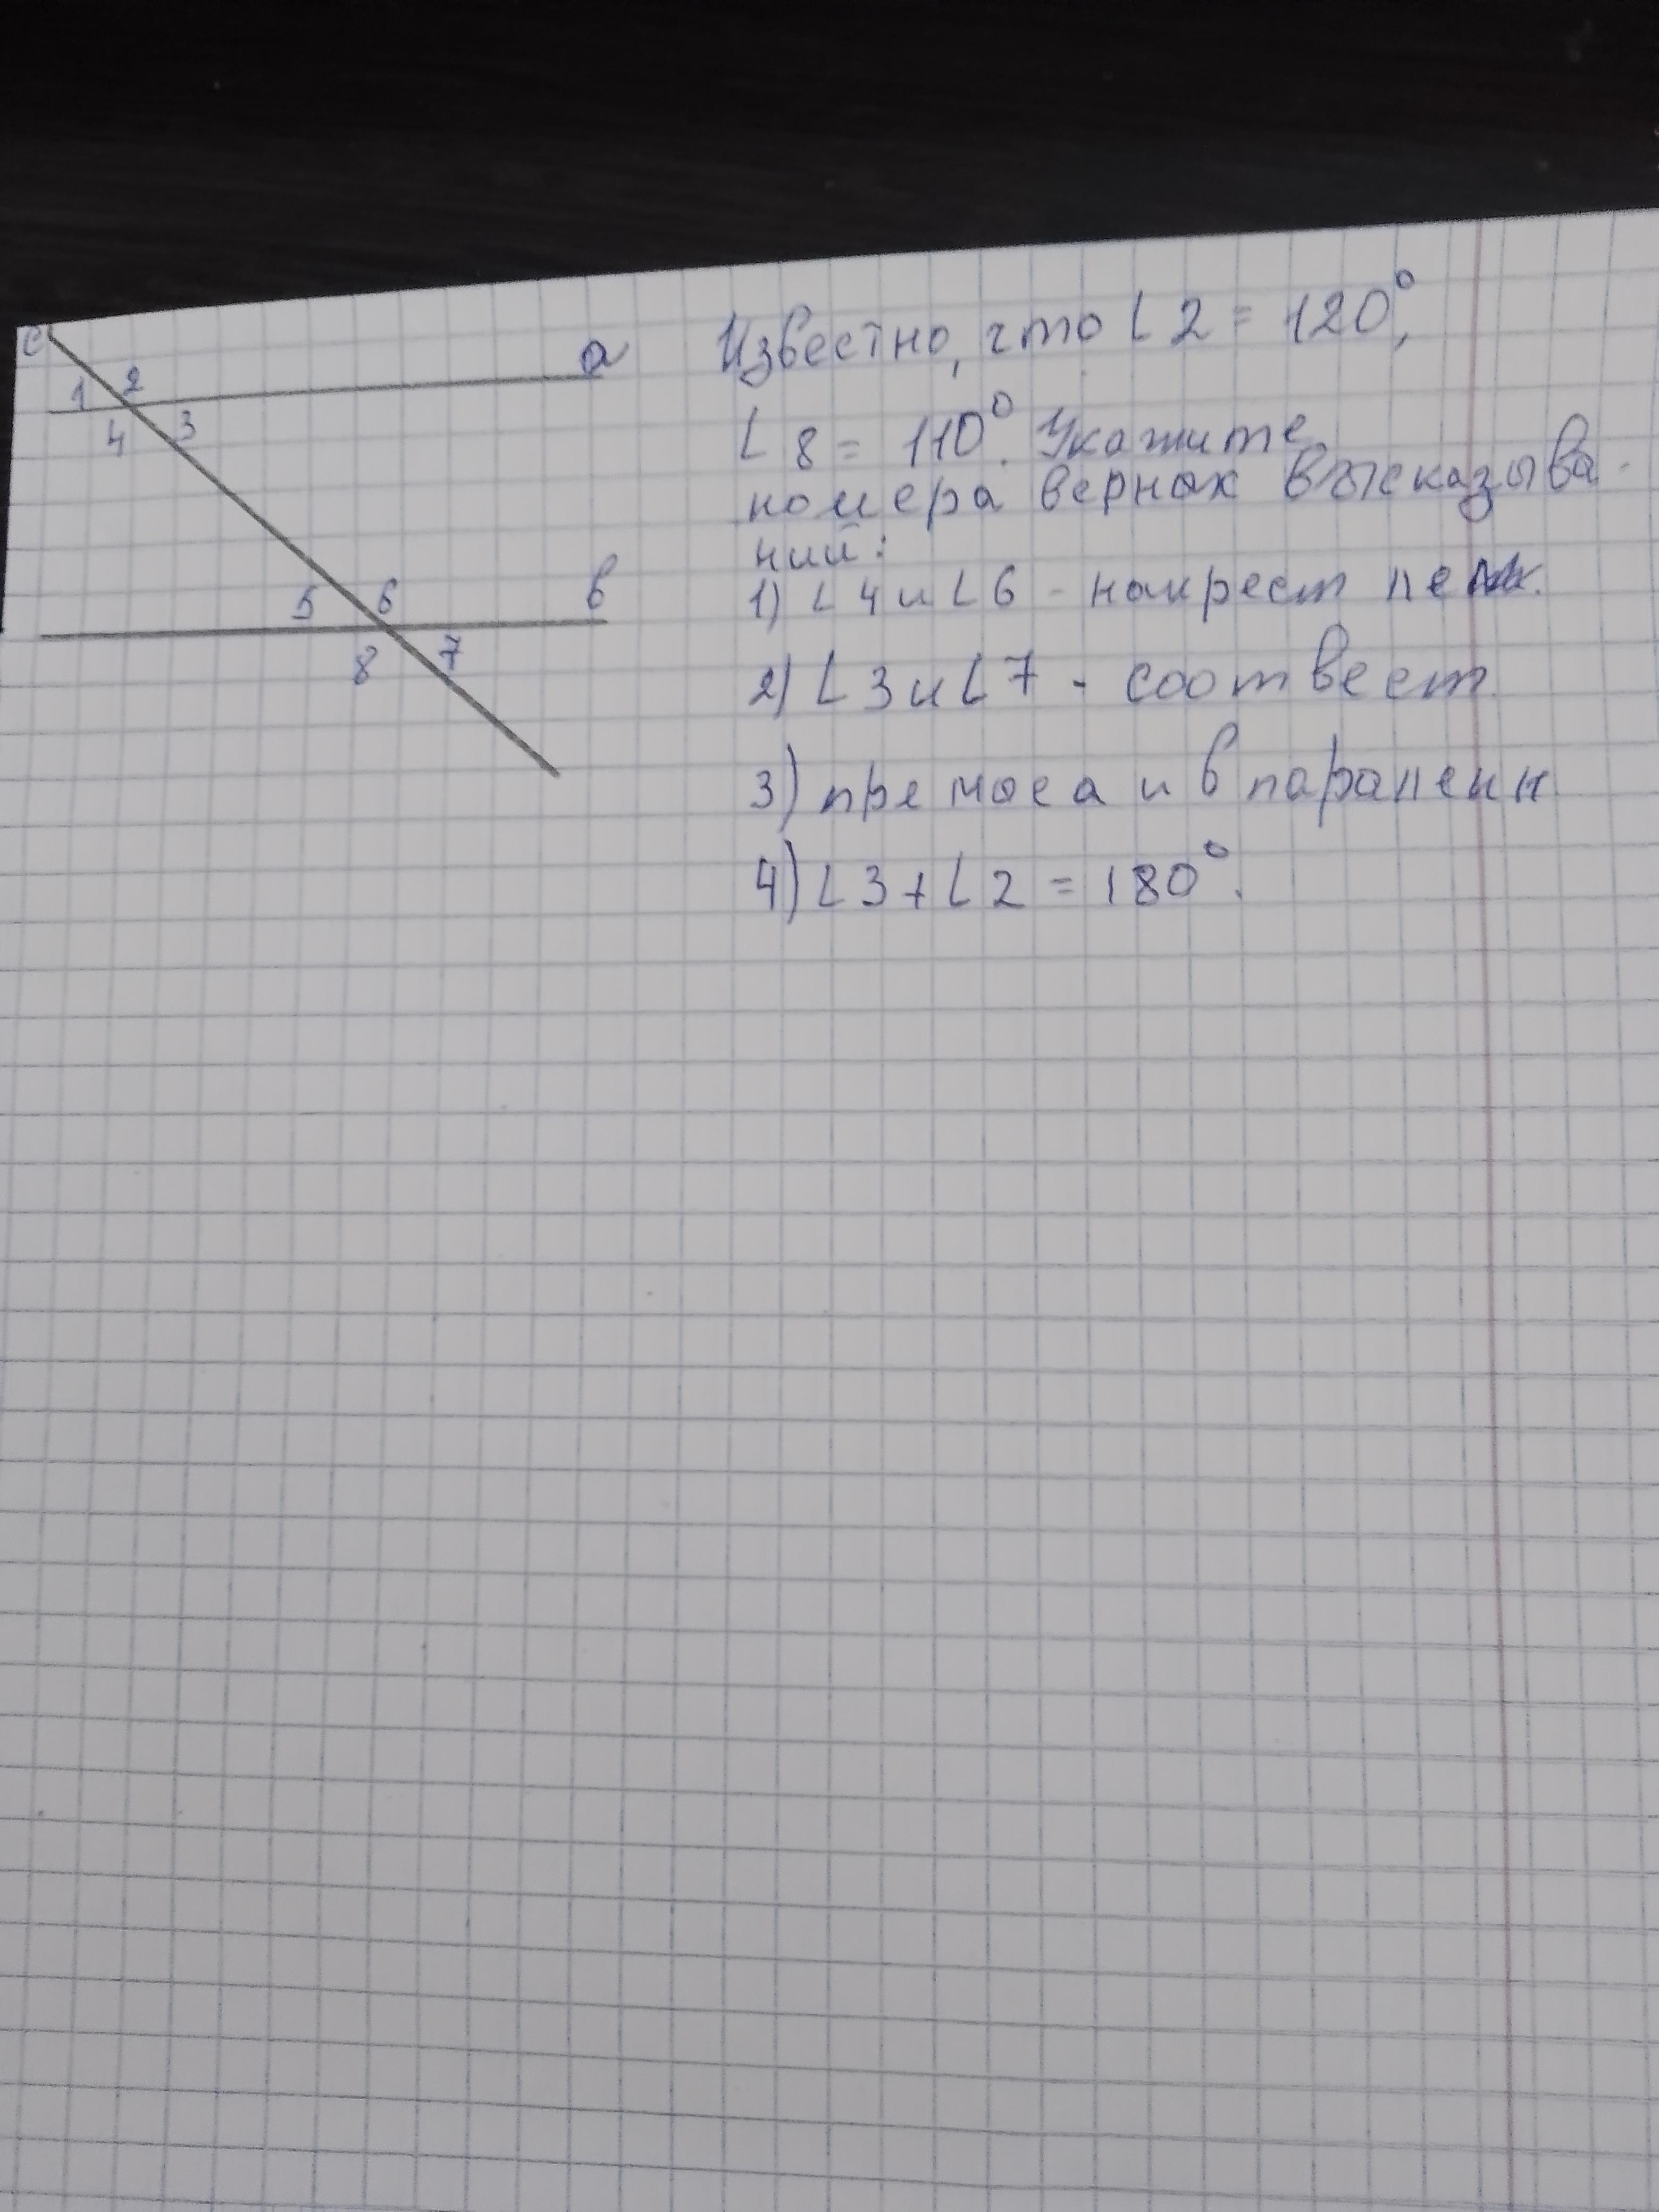 c
a
1 2
4 3
5 6 в
8 7
Известно, что ∠2 = 120°,
∠8 = 110°. Укажите
номера верных высказыва-
ний:
1) ∠4 и ∠6 - накрест леж.
2) ∠3 и ∠7 - соответст
3) прямые а и в параллелн
4) ∠3 + ∠2 = 180°.